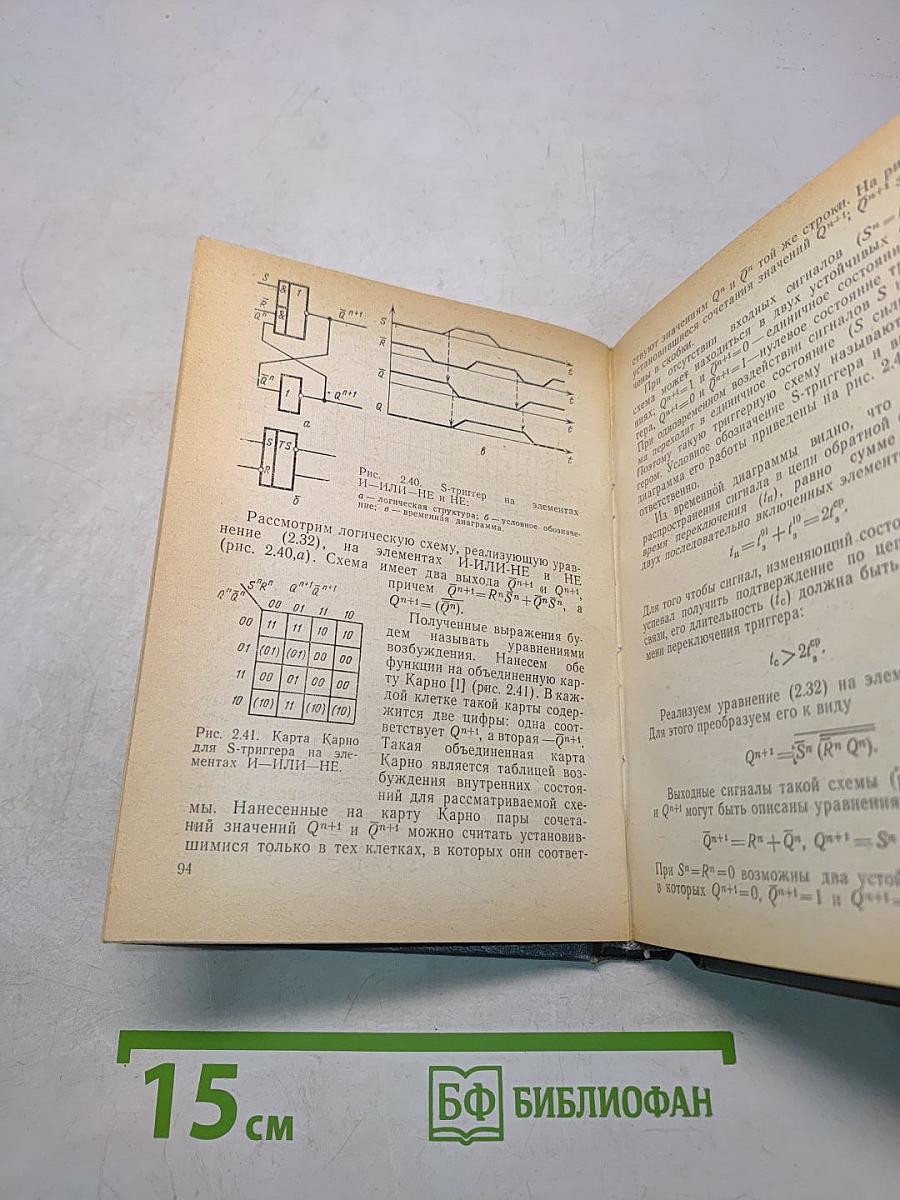 S
R̅
Q̅ⁿ
&
&
1
Q̅ⁿ⁺¹
Q̅ⁿ
1
Qⁿ⁺¹
а
S
R
TS
б
S
R̅
Q̅
Q
t
t
t
в
Рис. 2.40. S-триггер на элементах
И—ИЛИ—НЕ и НЕ:
а — логическая структура; б — условное обозначе-
ние; в — временная диаграмма.
Рассмотрим логическую схему, реализующую урав-
нение (2.32), на элементах И-ИЛИ-НЕ и НЕ
(рис. 2.40,а). Схема имеет два выхода Q̅ⁿ⁺¹ и Qⁿ⁺¹,
SⁿRⁿ Qⁿ⁺¹Q̅ⁿ⁺¹
QⁿQ̅ⁿ
00 01 11 10
00 11 11 10 10
01 (01) (01) 00 00
11 00 01 00 00
10 (10) 11 (10) (10)
Рис. 2.41. Карта Карно
для S-триггера на эле-
ментах И—ИЛИ—НЕ.
причем Q̅ⁿ⁺¹=RⁿS̅ⁿ+Q̅ⁿS̅ⁿ, а
Qⁿ⁺¹=(Q̅ⁿ).
Полученные выражения бу-
дем называть уравнениями
возбуждения. Нанесем обе
функции на объединенную кар-
ту Карно [1] (рис. 2.41). В каж-
дой клетке такой карты содер-
жится две цифры: одна соот-
ветствует Qⁿ⁺¹, а вторая —Q̅ⁿ⁺¹.
Такая объединенная карта
Карно является таблицей воз-
буждения внутренних состоя-
ний для рассматриваемой схе-
мы. Нанесенные на карту Карно пары сочета-
ний значений Qⁿ⁺¹ и Q̅ⁿ⁺¹ можно считать установив-
шимися только в тех клетках, в которых они соответ-
94
ствуют значениям Qⁿ и Q̅ⁿ той же строки. На
установившиеся сочетания значений Qⁿ⁺¹; Q̅ⁿ⁺¹
чены в скобки.
При отсутствии входных сигналов (Sⁿ=
схема может находиться в двух устойчивых
ниях; Qⁿ⁺¹=1 и Q̅ⁿ⁺¹=0 — единичное состояние
тера, Qⁿ⁺¹=0 и Q̅ⁿ⁺¹=1—нулевое состояние
При одновременном воздействии сигналов S и
ма переходит в единичное состояние (S
Поэтому такую триггерную схему называют
гером. Условное обозначение S-триггера и
диаграмма его работы приведены на рис. 2.4
ответственно.
Из временной диаграммы видно, что
распространения сигнала в цепи обратной
время переключения (tп), равно сумме
двух последовательно включенных элементов
tп=tз⁰¹+tз¹⁰=2tзᶜᵖ.
Для того чтобы сигнал, изменяющий
успевал получить подтверждение по цепи
связи, его длительность (tс) должна быть
мени переключения триггера:
tс>2tзᶜᵖ.
Реализуем уравнение (2.32) на
Для этого преобразуем его к виду
Qⁿ⁺¹= S̅ⁿ (R̅ⁿ Qⁿ).
Выходные сигналы такой схемы
и Qⁿ⁺¹ могут быть описаны
Q̅ⁿ⁺¹=Rⁿ+Q̅ⁿ, Qⁿ⁺¹=Sⁿ
При Sⁿ=Rⁿ=0 возможны два
в которых Qⁿ⁺¹=0, Q̅ⁿ⁺¹=1 и Qⁿ⁺¹=
15 см
БФ БИБЛИОФАН